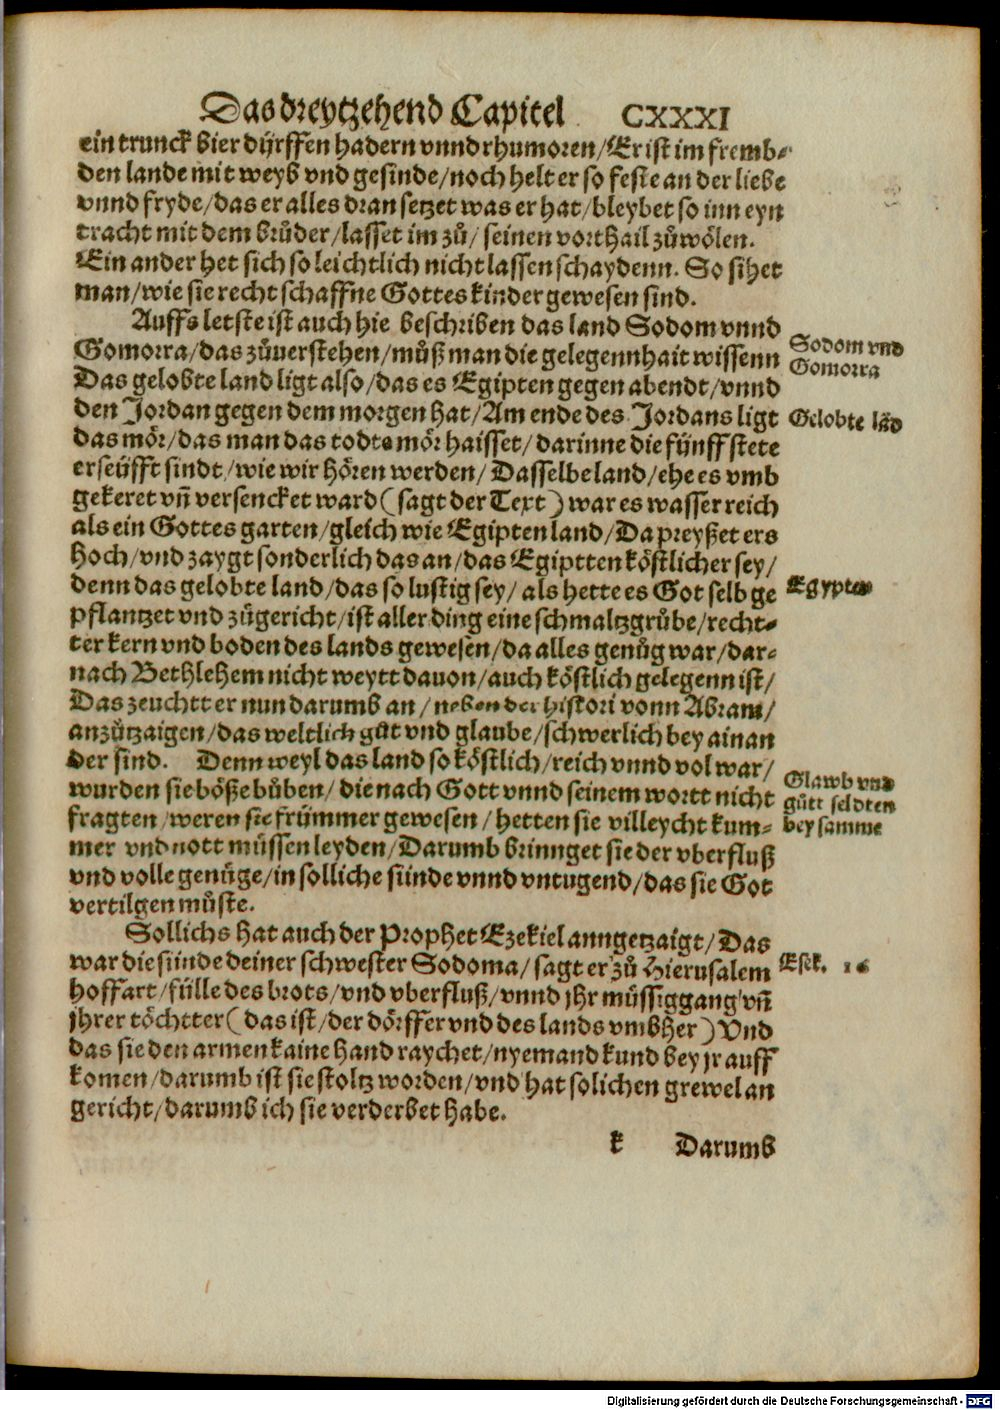 Das dreytzehend Capitel CXXXI
ein trunck bier dürffen hadern vnnd rhumoren/Er ist im fremb-
den lande mit weyb vnd gesinde/noch helt er so feste an der liebe
vnnd fryde/das er alles dran setzet was er hat/bleybet so inn eyn
tracht mit dem brůder/lasset im zů/ seinen vorthail zůwölen.
Ein ander het sich so leichtlich nicht lassen schaydenn. So sihet
man/wie sie recht schaffne Gottes kinder gewesen sind.
Auffs letste ist auch hie beschriben das land Sodom vnnd
Gomorra/das zůuerstehen/můß man die gelegennhait wissenn
Das gelobte land ligt also/das es Egipten gegen abendt/vnnd
den Jordan gegen dem morgen hat/Am ende des Jordans ligt
das mör/das man das todte mör haisset/darinne die fünff stete
erseüfft sindt/wie wir hören werden/Dasselbe land/ehe es vmb
gekeret vn̄ versencket ward(sagt der Text)war es wasser reich
als ein Gottes garten/gleich wie Egipten land/Da preyßet ers
hoch/vnd zaygt sonderlich das an/das Egiptten köstlicher sey/
denn das gelobte land/das so lustig sey/als hette es Got selb ge
pflantzet vnd zůgericht/ist aller ding eine schmaltzgrůbe/recht-
ter kern vnd boden des lands gewesen/da alles genůg war/dar-
nach Bethlehem nicht weytt dauon/auch köstlich gelegenn ist/
Das zeuchtt er nun darumb an/neben der histori vonn Abram/
anzůtzaigen/das weltlich gůt vnd glaube/schwerlich bey ainan
der sind. Denn weyl das land so köstlich/reich vnnd vol war/
wurden sie böße bůben/die nach Gott vnnd seinem wortt nicht
fragten/weren sie frümmer gewesen/hetten sie villeycht kum-
mer vnd nott müssen leyden/Darumb brinnget sie der vberfluß
vnd volle genůge/in solliche sünde vnnd vntugend/das sie Got
vertilgen můste.
Sollichs hat auch der Prophet Ezekiel anngetzaigt/Das
war die sünde deiner schwester Sodoma/sagt er zů Hierusalem
hoffart/fülle des brots/vnd vberfluß/vnnd jhr müssiggang vn̄
jhrer töchtter(das ist/der dörffer vnd des lands vmbher)Vnd
das sie den armen kaine hand raychet/nyemand kund bey jr auff
komen/darumb ist sie stoltz worden/vnd hat solichen grewel an
gericht/darumb ich sie verderbet habe.
k Darumb
Sodom vnd
Gomorra
Gelobte lād
Egypten
Glawb vnd
gůtt seldten
bey samme
Esek. 16
Digitalisierung gefördert durch die Deutsche Forschungsgemeinschaft - DFG